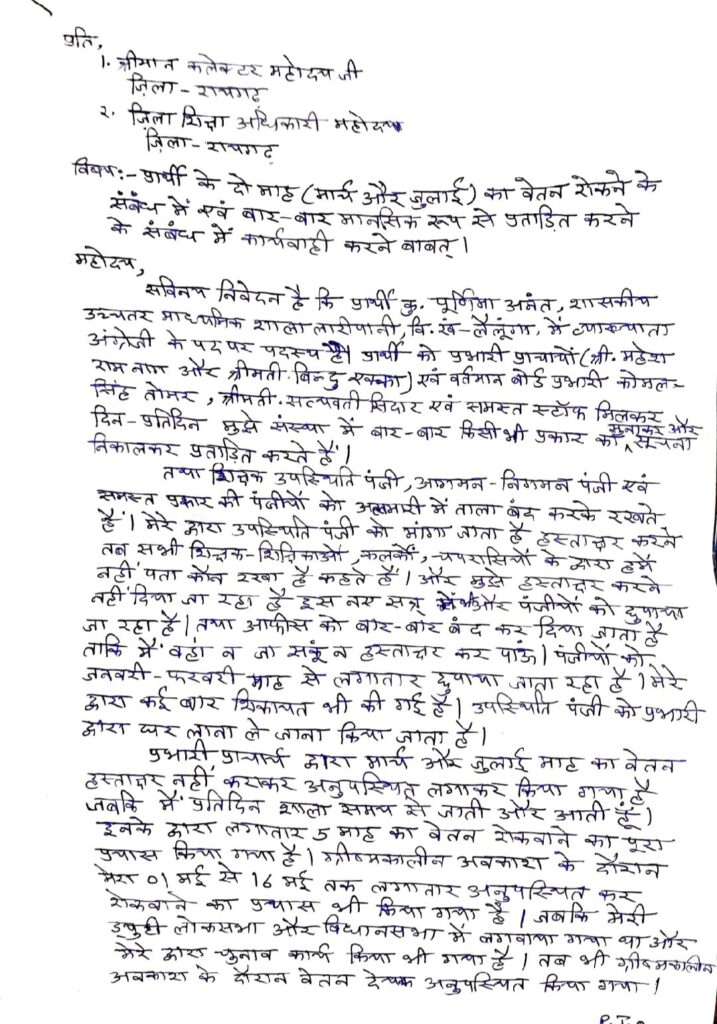 प्रति,
1. श्रीमान कलेक्टर महोदय जी
जिला - रायगढ़
२. जिला शिक्षा अधिकारी महोदय
जिला - रायगढ़
विषय:- प्रार्थी के दो माह (मार्च और जुलाई) का वेतन रोकने के
संबंध में एवं बार-बार मानसिक रूप से प्रताड़ित करने
के संबंध में कार्यवाही करने बाबत्।
महोदय,
सविनय निवेदन है कि प्रार्थी कु. पूर्णिमा अनंत, शासकीय
उच्चतर माध्यमिक शाला लारीपानी, वि.खं-लैलूंगा, में व्याख्याता
अंग्रेजी के पद पर पदस्थ है। प्रार्थी को प्रभारी प्राचार्यों (श्री. महेश
राम नाग और श्रीमती. बिन्दु एक्का) एवं वर्तमान बोर्ड प्रभारी कोमल-
सिंह तोमर, श्रीमती. सत्यवती सिदार एवं समस्त स्टॉफ मिलकर
दिन-प्रतिदिन मुझे संस्था में बार-बार किसी भी प्रकार का सुनाकर और सूचना
निकालकर प्रताड़ित करते हैं।
तथा शिक्षक उपस्थिति पंजी, आगमन-निगमन पंजी एवं
समस्त प्रकार की पंजीयों को अलमारी में ताला बंद करके रखते
हैं। मेरे द्वारा उपस्थिति पंजी को मांगा जाता है हस्ताक्षर करने
तब सभी शिक्षक-शिक्षिकाओं, कलर्कों, चपरासियों के द्वारा हमें
नहीं पता कौन रखा है कहते हैं। और मुझे हस्ताक्षर करने
नहीं दिया जा रहा है इस नए सत्र और पंजीयों को छुपाया
जा रहा है। तथा आफीस को बार-बार बंद कर दिया जाता है
ताकि मैं वहां न जा सकूं न हस्ताक्षर कर पाऊं। पंजीयों को
जनवरी-फरवरी माह से लगातार छुपाया जाता रहा है। मेरे
द्वारा कई बार शिकायत भी की गई है। उपस्थिति पंजी को प्रभारी
द्वारा घर लाना ले जाना किया जाता है।
प्रभारी प्राचार्य द्वारा मार्च और जुलाई माह का वेतन
हस्ताक्षर नहीं कराकर अनुपस्थित लगाकर किया गया है
जबकि मैं प्रतिदिन शाला समय से जाती और आती हूं।
इनके द्वारा लगातार 5 माह का वेतन रोकवाने का पूरा
प्रयास किया गया है। ग्रीष्मकालीन अवकाश के दौरान
मेरा 01 मई से 16 मई तक लगातार अनुपस्थित कर
रोकवाने का प्रयास भी किया गया है। जबकि मेरी
ड्युटी लोकसभा और विधानसभा में लगवाया गया था और
मेरे द्वारा चुनाव कार्य किया भी गया है। तब भी ग्रीष्मकालीन
अवकाश के दौरान वेतन देयक अनुपस्थित किया गया।
P.T.O